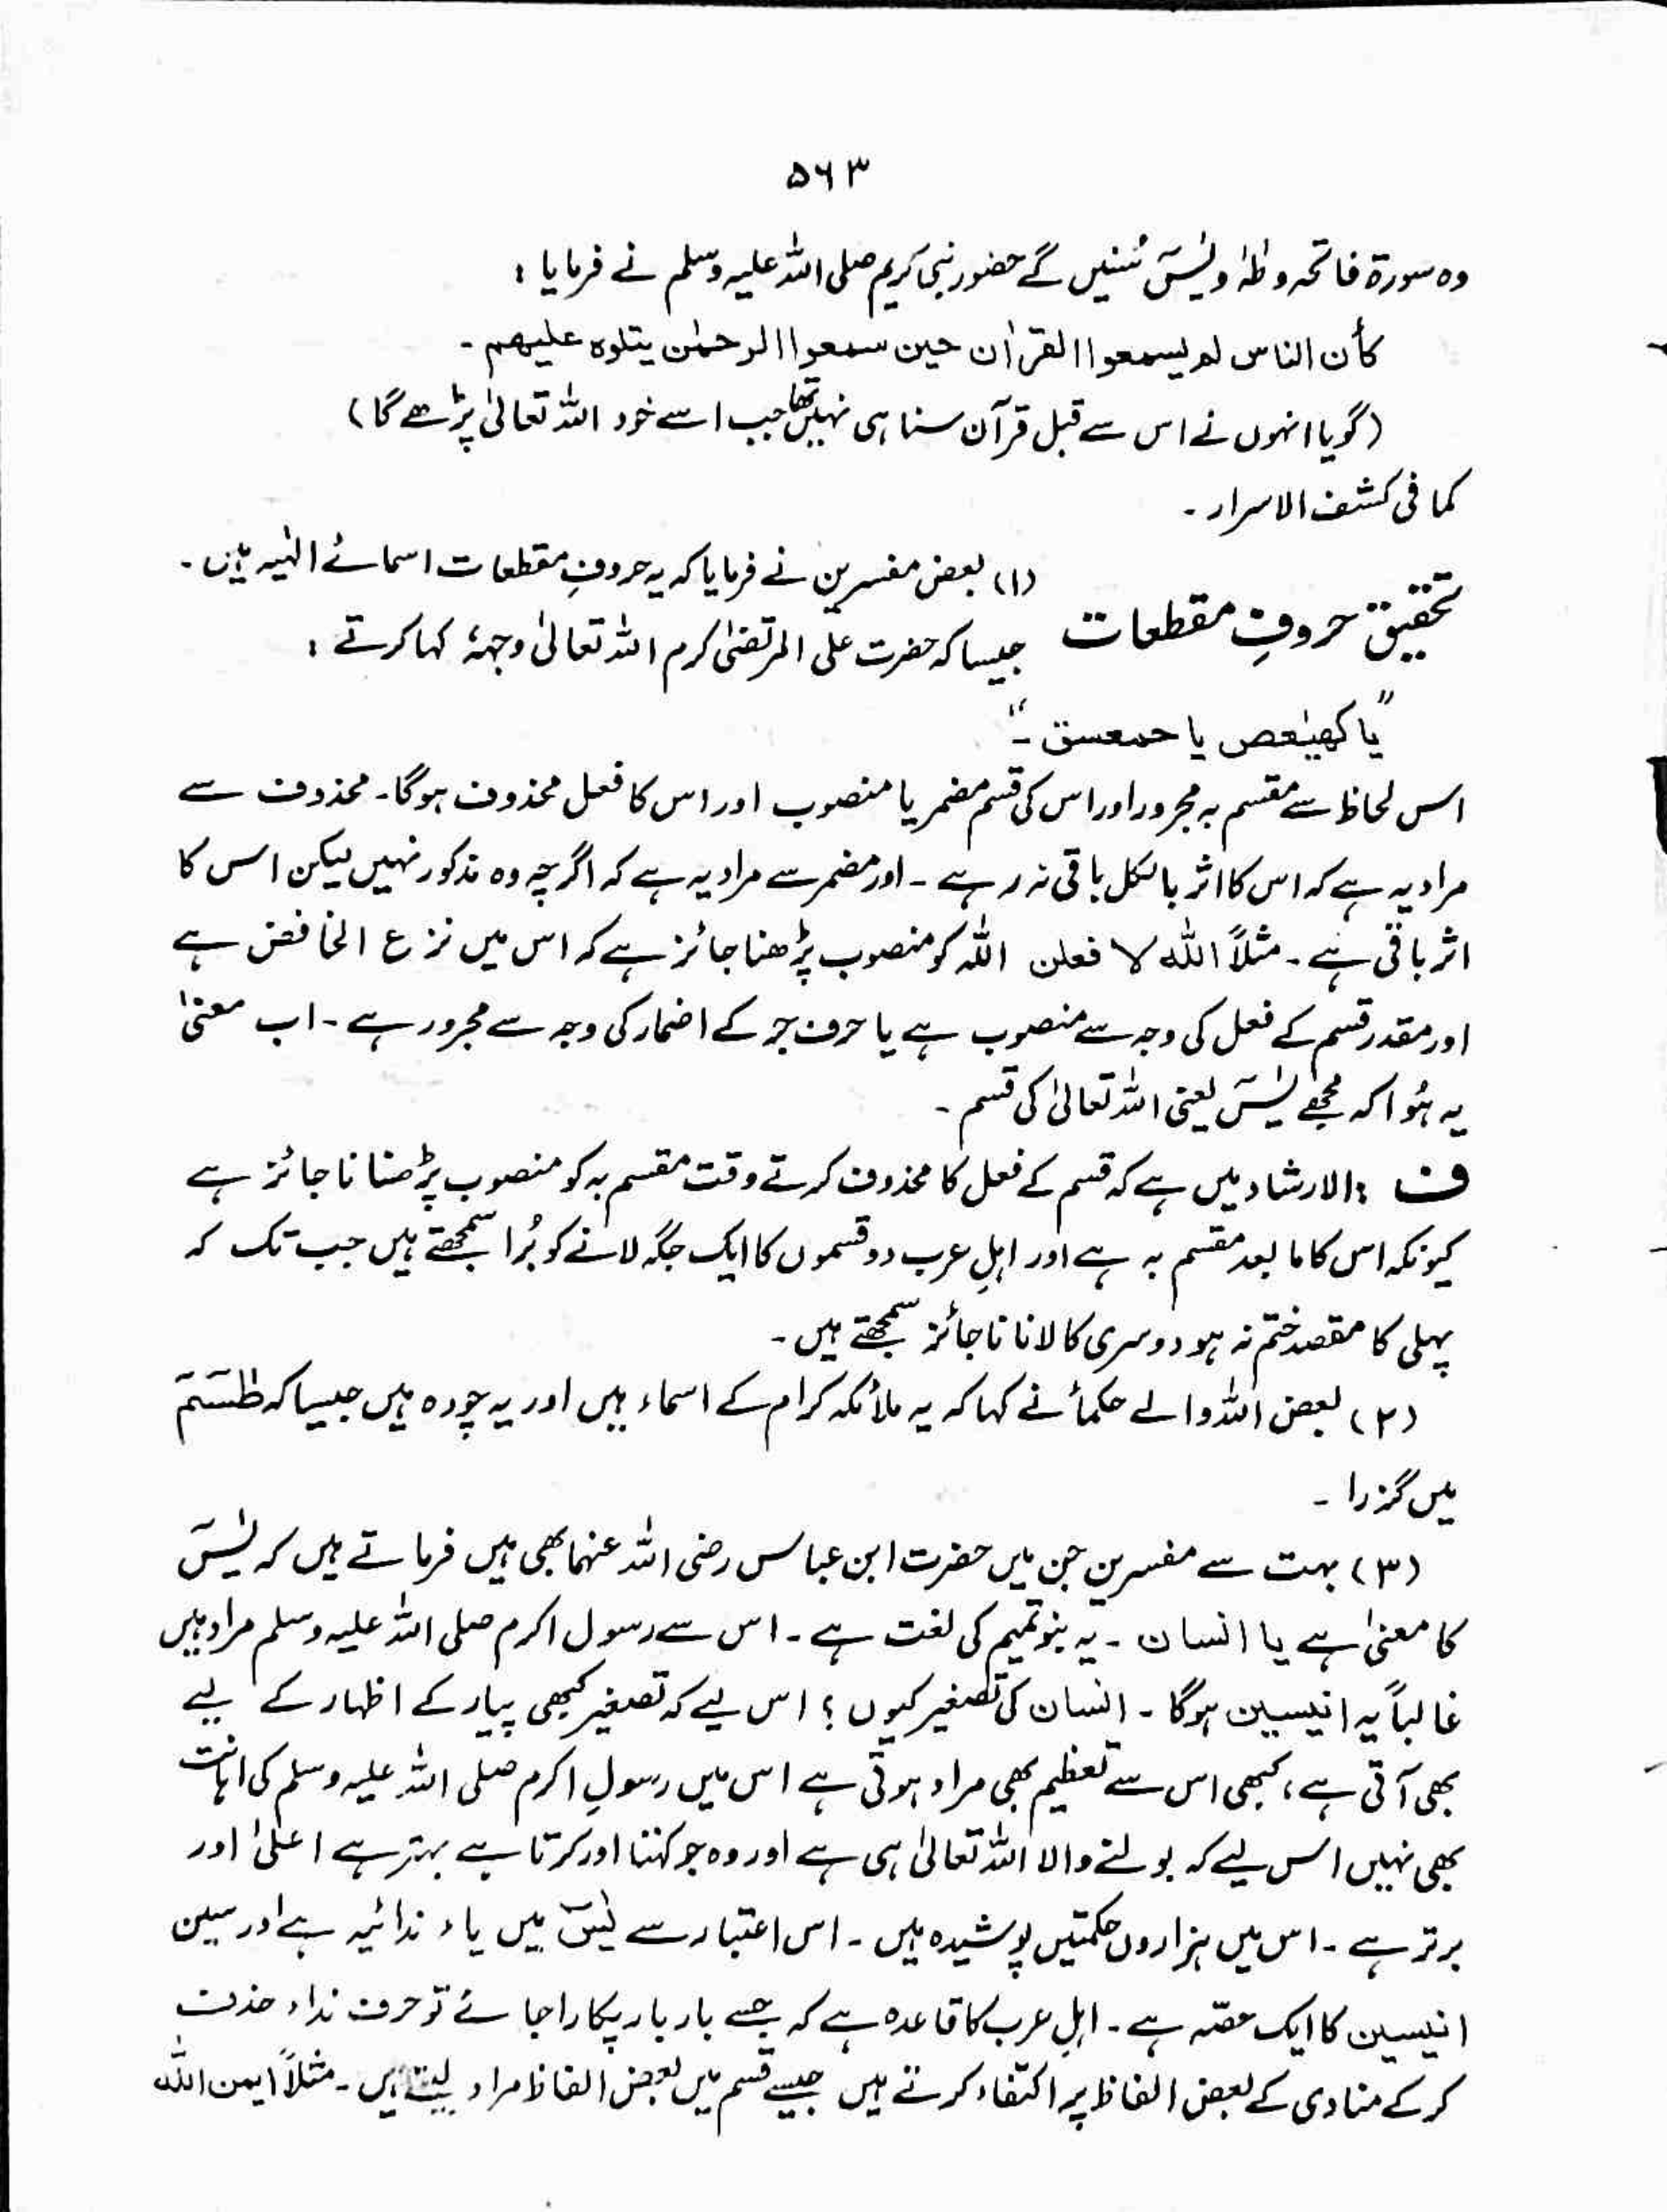 ۵۶۳
وہ سورۃ فاتحہ و طٰہٰ و یٰسٓ سُنیں گے حضور نبی کریم صلی اللہ علیہ وسلم نے فرمایا :
کأن الناس لم یسمعوا القرآن حین سمعوا الرحمٰن یتلوہ علیھم ۔
(گویا انہوں نے اس سے قبل قرآن سنا ہی نہیں تھا جب اسے خود اللہ تعالیٰ پڑھے گا)
کما فی کشف الاسرار ۔
تحقیق حروفِ مقطعات
(۱) بعض مفسرین نے فرمایا کہ یہ حروفِ مقطعات اسمائے الٰہیہ ہیں ۔
جیسا کہ حضرت علی المرتضیٰ کرم اللہ تعالیٰ وجہہٗ کہا کرتے :
"یا کھیٰعص یا حمعسق ۔"
اس لحاظ سے مقسم بہ مجرور اور اس کی قسم مضمر یا منصوب اور اس کا فعل محذوف ہوگا۔ محذوف سے
مراد یہ ہے کہ اس کا اثر بالکل باقی نہ رہے ۔ اور مضمر سے مراد یہ ہے کہ اگرچہ وہ مذکور نہیں لیکن اس کا
اثر باقی ہے ۔ مثلاً اللہ لا فعلن اللہ کو منصوب پڑھنا جائز ہے کہ اس میں نزع الخافض ہے
اور مقدر قسم کے فعل کی وجہ سے منصوب ہے یا حرف جر کے اضمار کی وجہ سے مجرور ہے ۔ اب معنیٰ
یہ ہُوا کہ مجھے یٰسٓ یعنی اللہ تعالیٰ کی قسم ۔
ف : الارشاد میں ہے کہ قسم کے فعل کا محذوف کرتے وقت مقسم بہ کو منصوب پڑھنا ناجائز ہے
کیونکہ اس کا ما بعد مقسم بہ ہے اور اہلِ عرب دو قسموں کا ایک جگہ لانے کو بُرا سمجھتے ہیں جب تک کہ
پہلی کا مقصد ختم نہ ہو دوسری کا لانا ناجائز سمجھتے ہیں ۔
(۲) بعض اللہ والے حکمأ نے کہا کہ یہ ملائکہ کرام کے اسماء ہیں اور یہ چودہ ہیں جیسا کہ طٰسٓمٓ
میں گزرا ۔
(۳) بہت سے مفسرین جن میں حضرت ابن عباس رضی اللہ عنہما بھی ہیں فرماتے ہیں کہ یٰسٓ
کا معنیٰ ہے یا انسان ۔ یہ بنو تمیم کی لغت ہے ۔ اس سے رسول اکرم صلی اللہ علیہ وسلم مراد ہیں
غالباً یہ انیسین ہوگا ۔ انسان کی تصغیر کیوں ؟ اس لیے کہ تصغیر کبھی پیار کے اظہار کے لیے
بھی آتی ہے ، کبھی اس سے تعظیم بھی مراد ہوتی ہے اس میں رسولِ اکرم صلی اللہ علیہ وسلم کی اہانت
بھی نہیں اس لیے کہ بولنے والا اللہ تعالیٰ ہی ہے اور وہ جو کہتا اور کرتا ہے بہتر ہے اعلیٰ اور
برتر ہے ۔ اس میں ہزاروں حکمتیں پوشیدہ ہیں ۔ اس اعتبار سے یٰسٓ میں یاء ندائیہ ہے اور سین
انیسین کا ایک حصّہ ہے ۔ اہلِ عرب کا قاعدہ ہے کہ جسے بار بار پکارا جائے تو حرف نداء حذف
کر کے منادی کے بعض الفاظ پر اکتفاء کرتے ہیں جیسے قسم میں بعض الفاظ مراد لیتے ہیں ۔ مثلاً ایمن اللہ